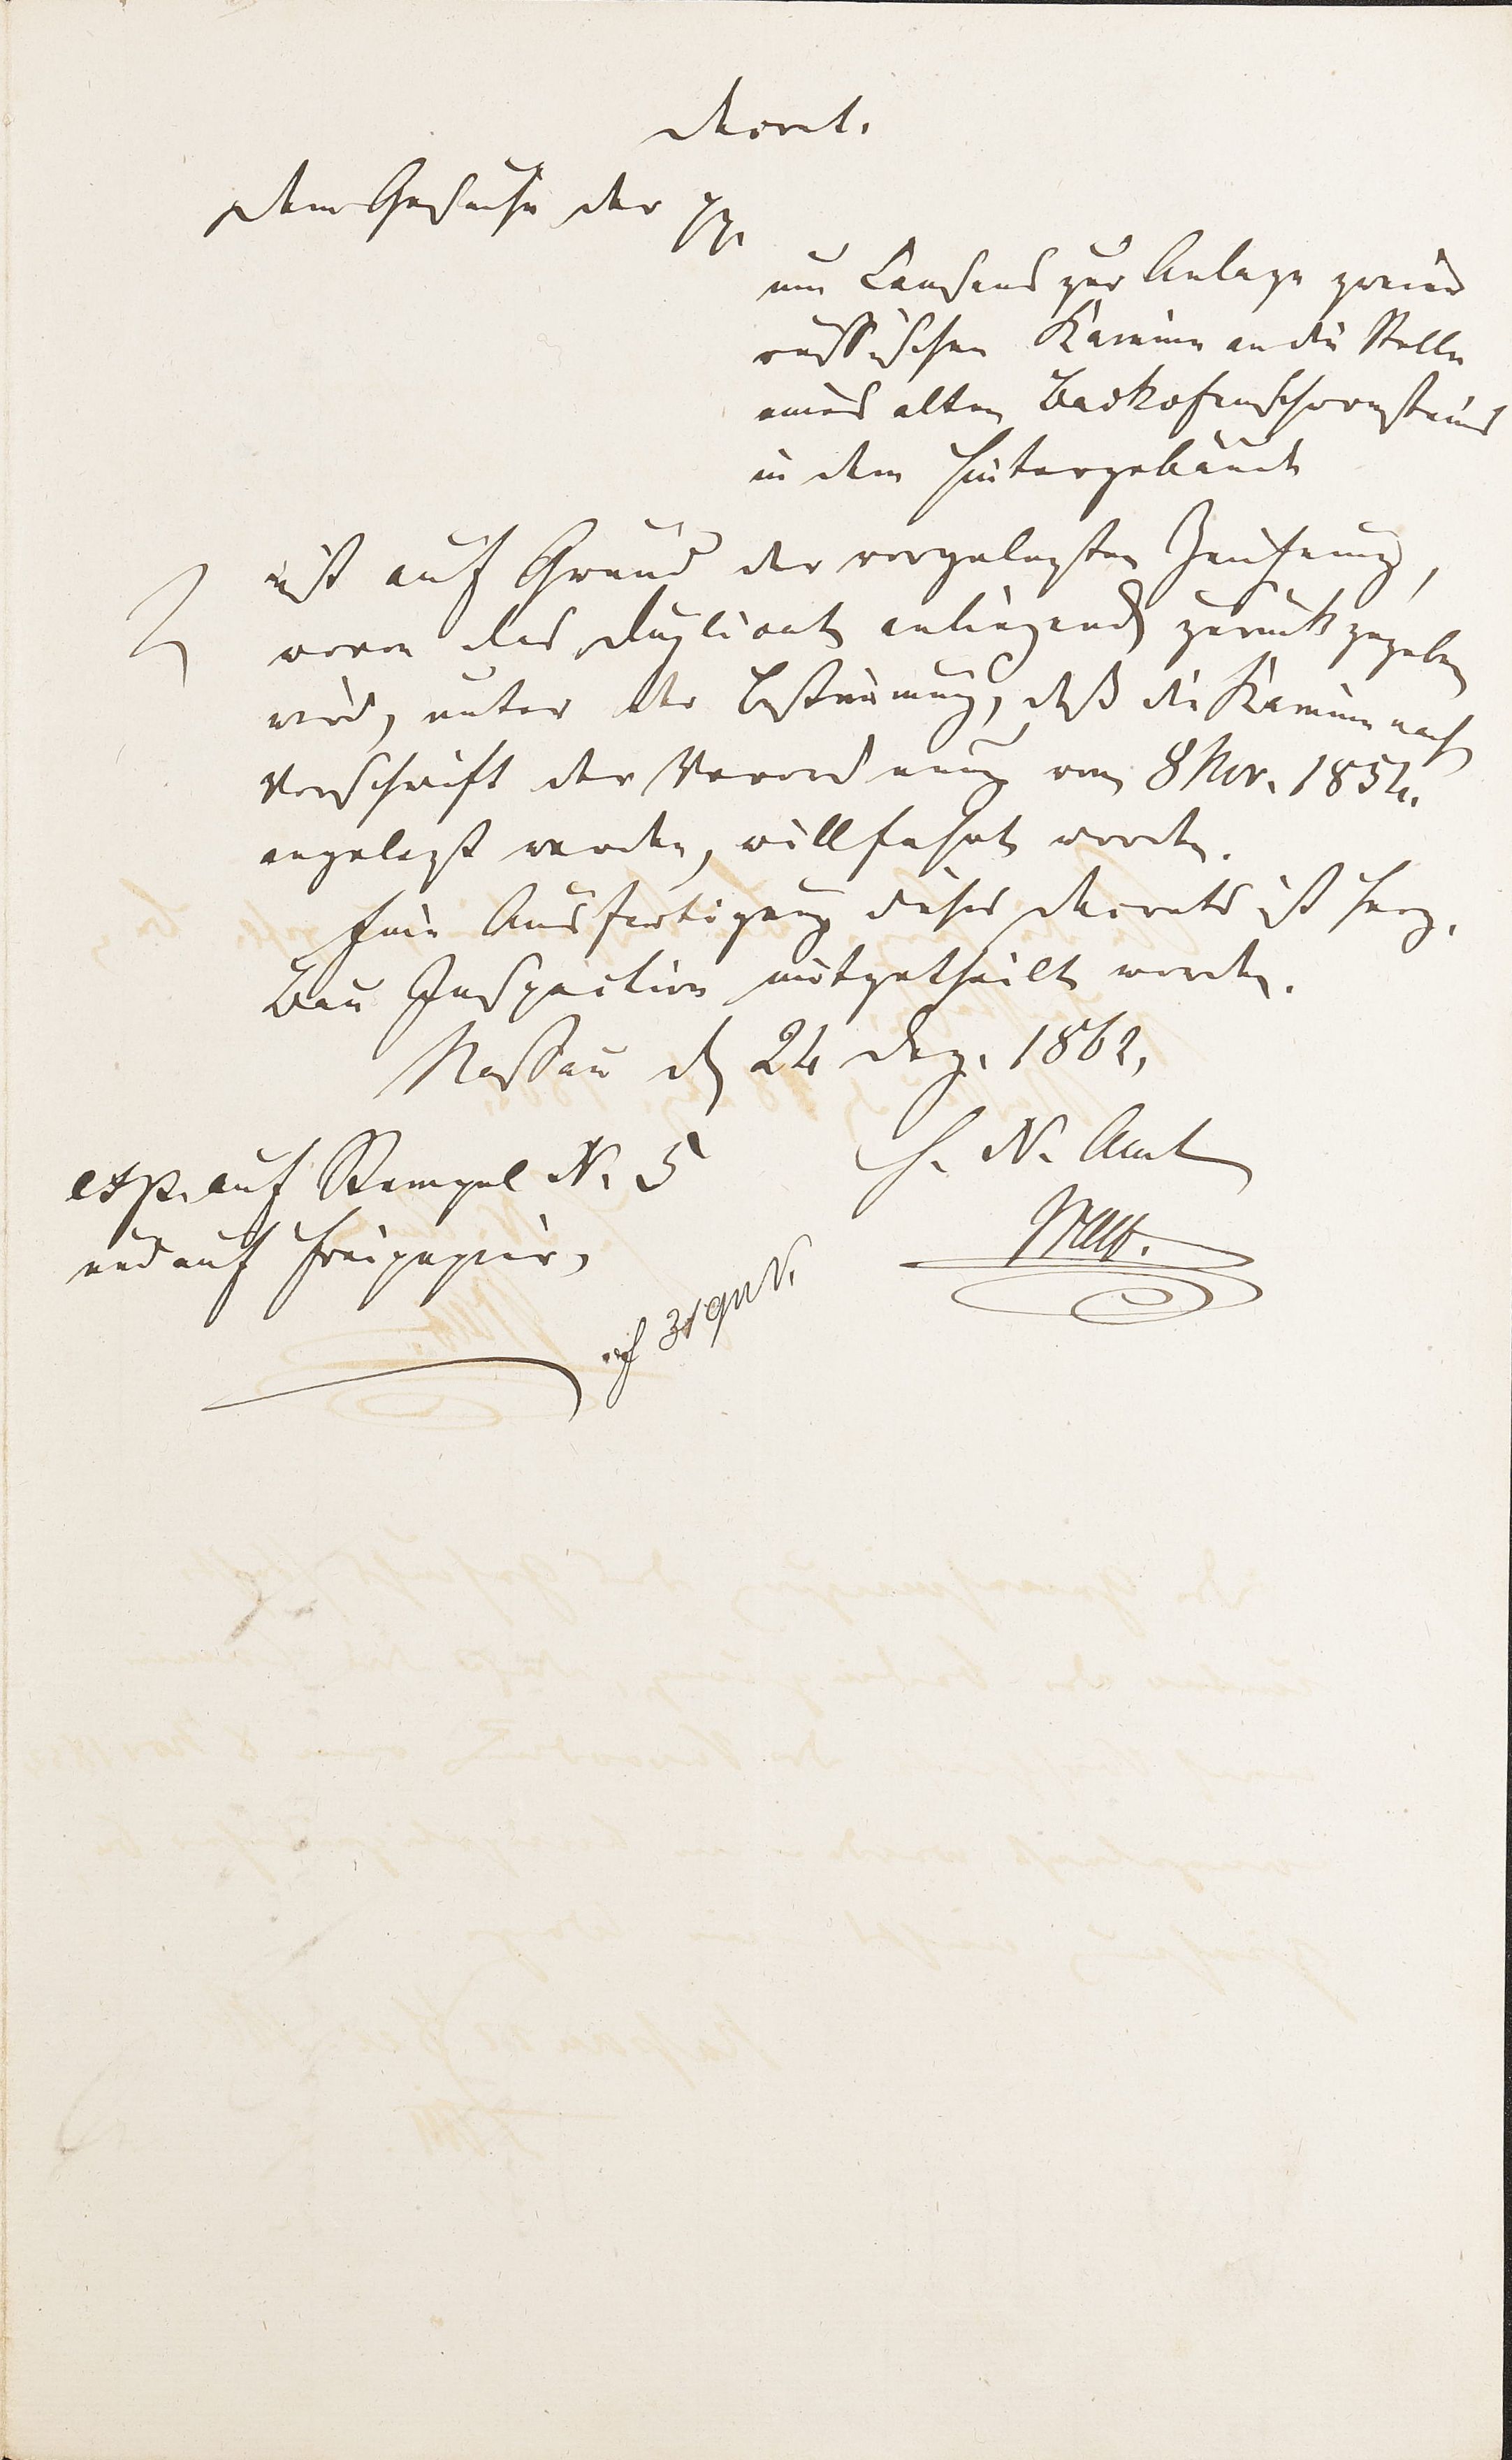 Decret.
Dem Gesuche der pp.
um Consens zur Anlage zweier
russischen Kamine an die Stelle
eines alten Backofenschornsteins
in dem Hintergebäude
ist auf Grund der vorgelegten Zeichnung,
wovon das Duplicat anliegend zurückgegeben
wird, unter der Bestimmung, daß die Kamine nach
Vorschrift der Verordnung vom 8 Nov. 1854.
angelegt werden, willfahrt worden.
Eine Ausfertigung dieses Decrets ist Herz.
Bau Inspection mitgetheilt worden.
Nassau d 24 Dez. 1862,
H. N. Amt
exp. auf Stempel N. 5
und auf Freipapier,